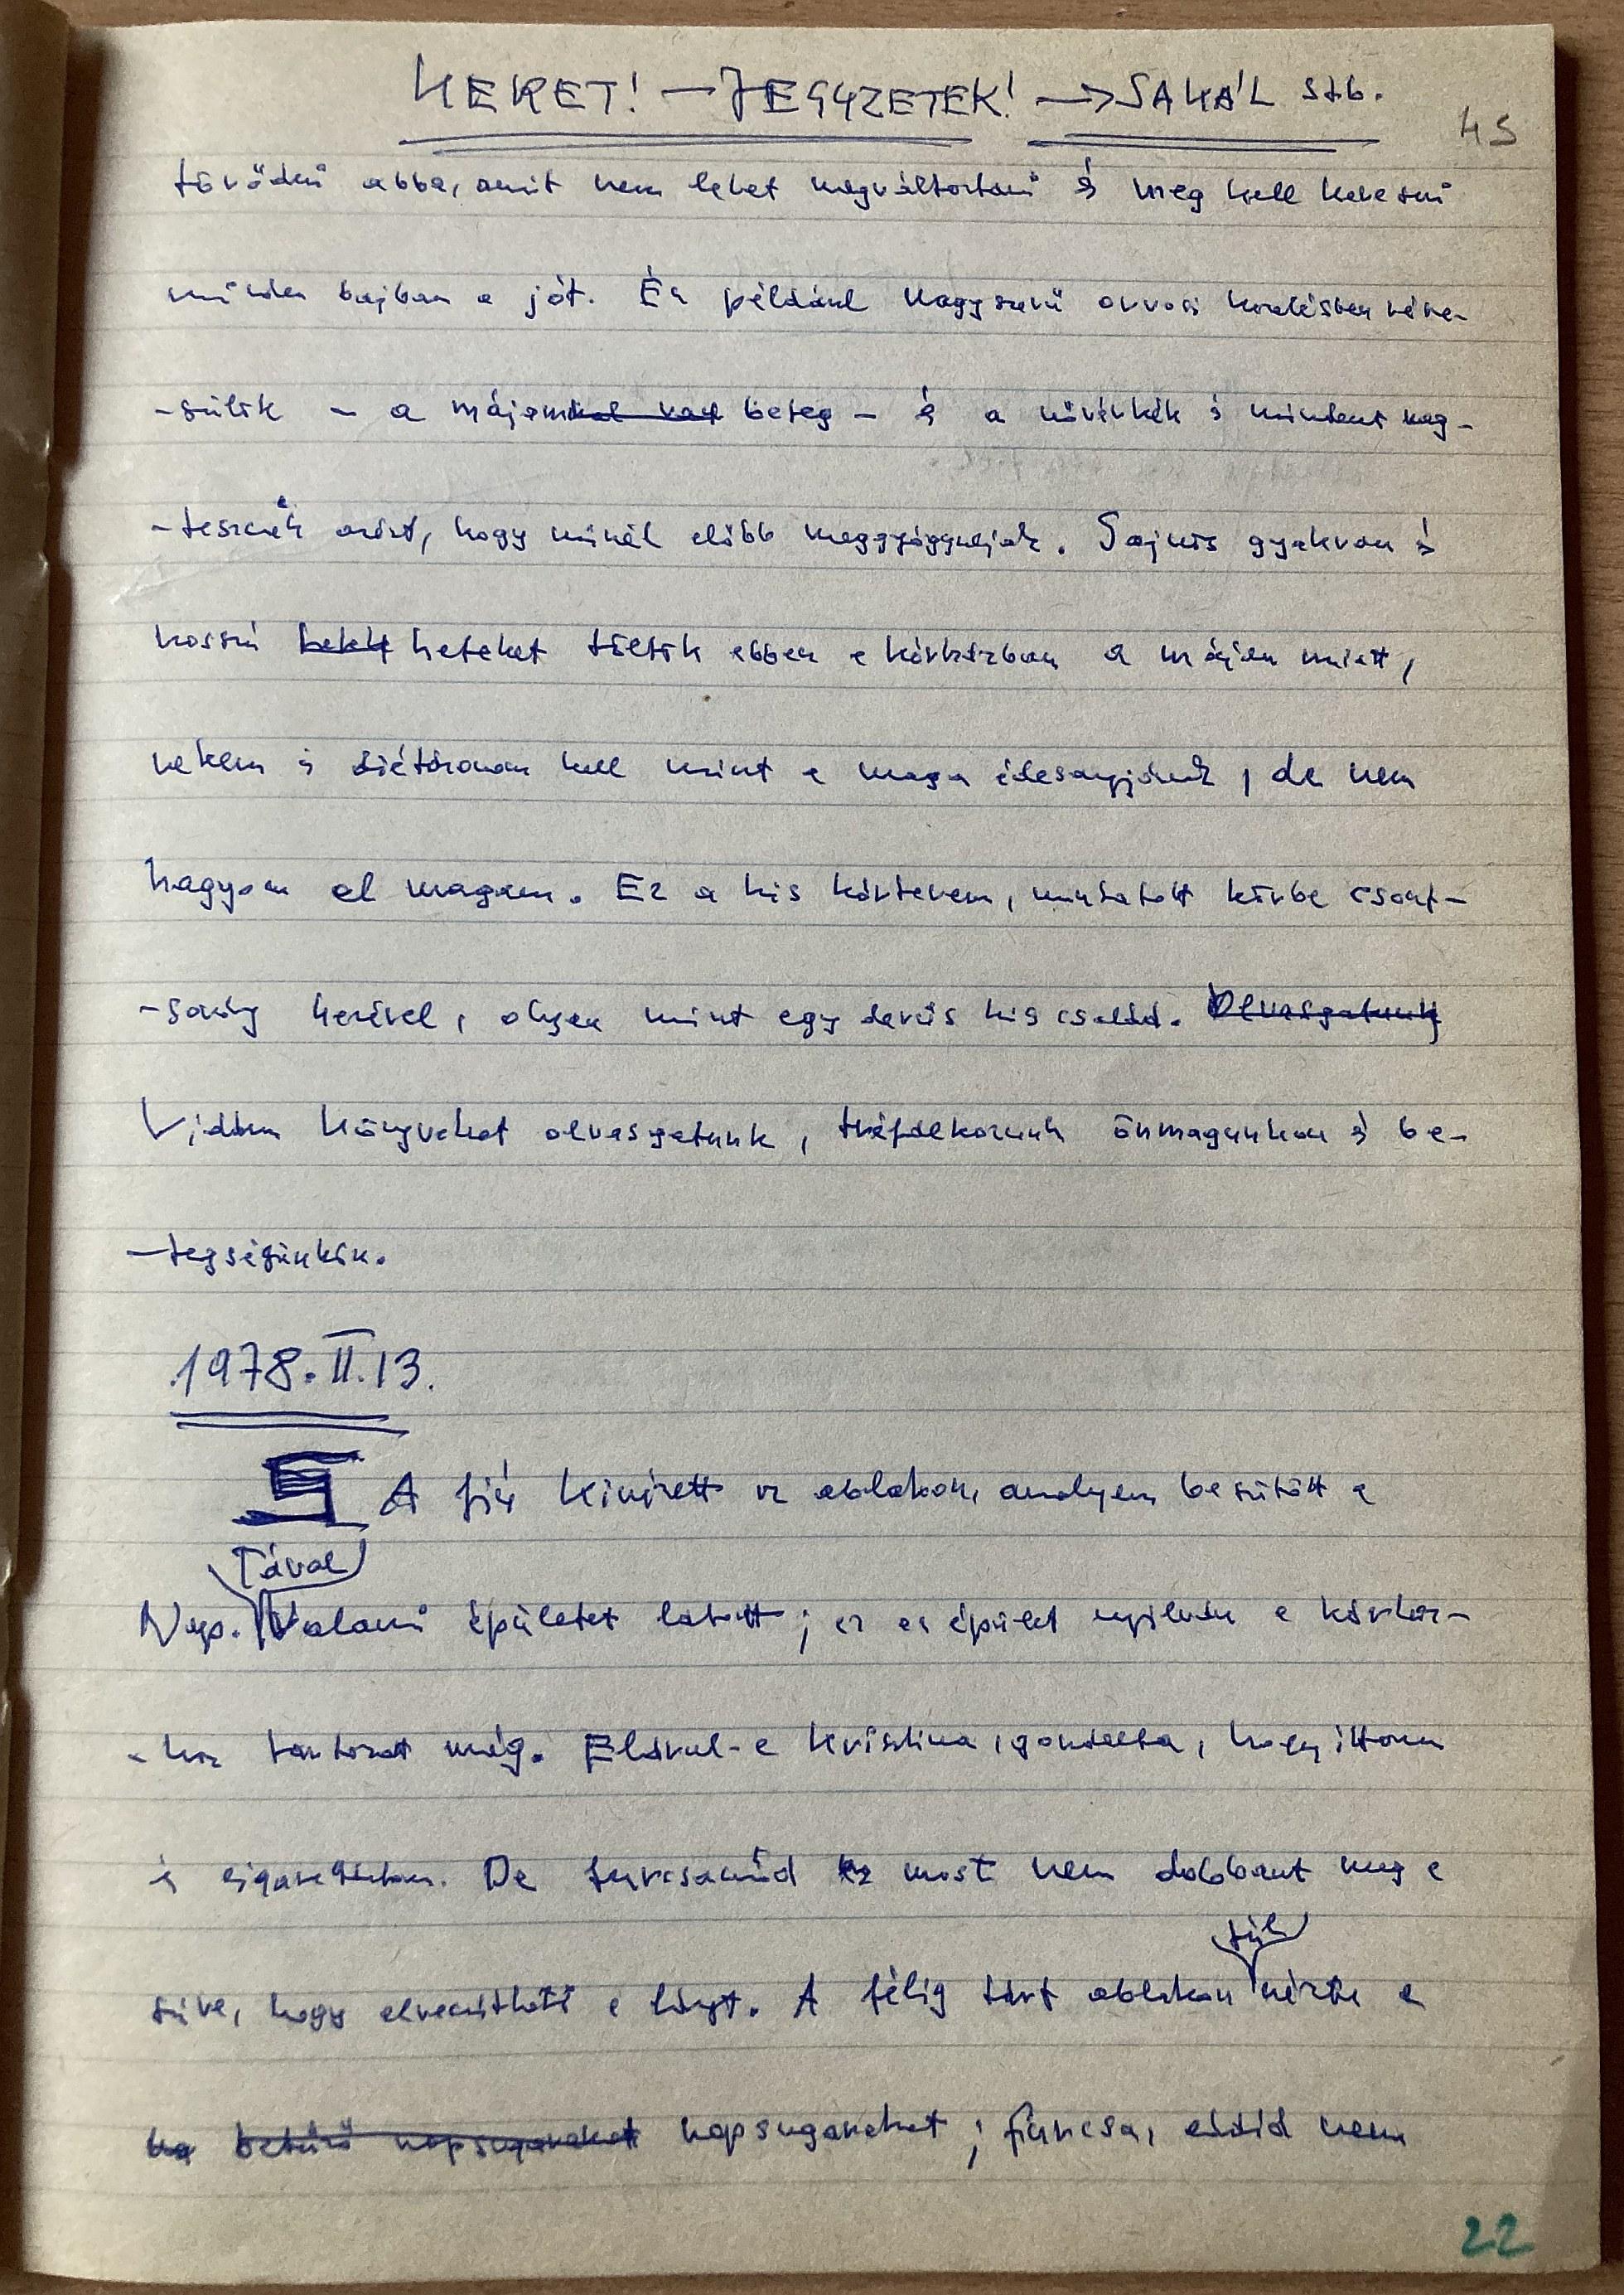 KERET! — JEGYZETEK! —> SAKÁL stb.
45
törődni abba, amit nem lehet megváltoztatni és meg kell keresni
minden bajban a jót. Én például nagyszerű orvosi kezelésben része-
-sülik - a májam beteg - és a nővérkék is mindent meg-
-tesznek azért, hogy minél előbb meggyógyuljak. Sajnos gyakran és
hosszú heteket töltök ebben a kórházban a májam miatt,
nekem is diétáznom kell mint a maga édesanyjának, de nem
hagyom el magam. Ez a kis kórterem, mutatott körbe csont-
-sovány kezével, olyan mint egy derűs kis család. Olvasgatunk
Vidám könyveket olvasgatunk, tréfálkozunk önmagunkon és be-
-tegségünkön.
1978. II. 13.
A fiú kinézett az ablakon, amelyen besütött a
Távol
Nap. Valami épületet látott; ez az épület nyilván a kórház-
-hoz tartozott még. Elárul-e Krisztina, gondolta, hogy ittam
és cigarettáztam. De furcsamód ez most nem dobbant meg a
túl
szíve, hogy elveszítheti a lányt. A félig tárt ablakon nézte a
ha betűző napsugarakat napsugarakat; furcsa, eddig nem
22